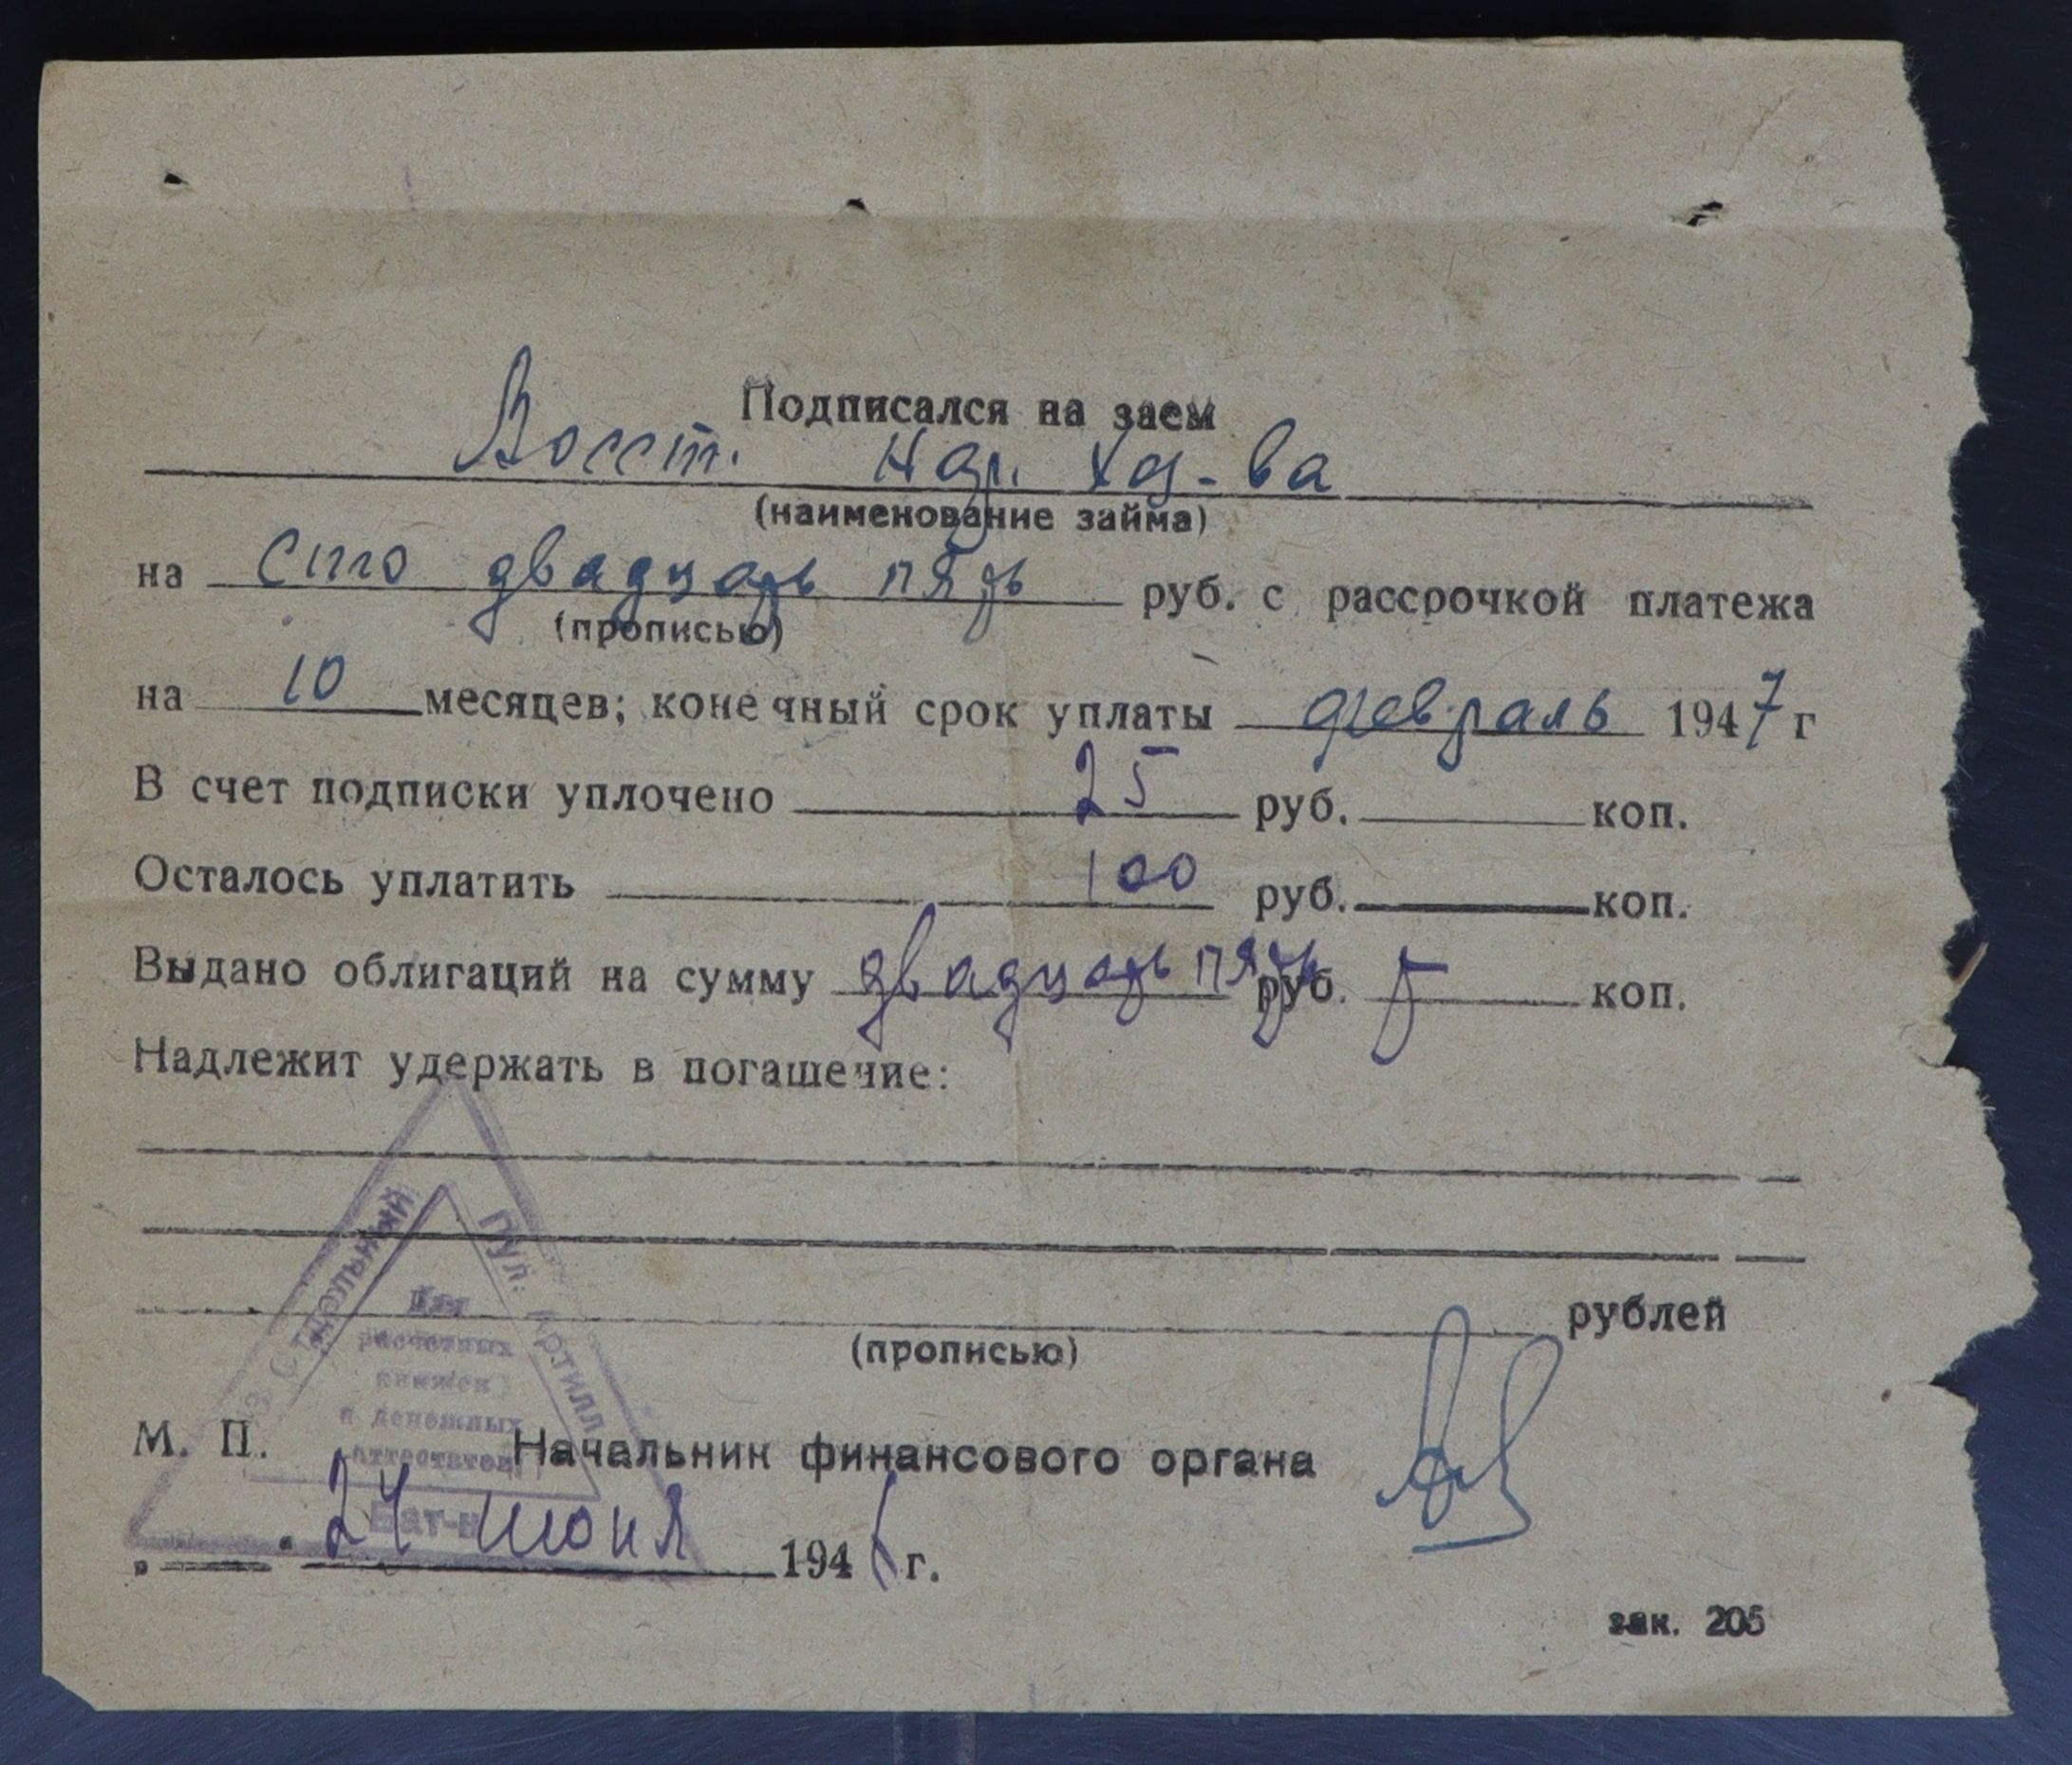 Подписался на заем
Восст. Нар. Хоз-ва
(наименование займа)
на сто двадцать пять руб. с рассрочкой платежа
(прописью)
на 10 месяцев; конечный срок уплаты февраль 1947 г
В счет подписки уплочено 25 руб. коп.
Осталось уплатить 100 руб. коп.
Выдано облигаций на сумму двадцать пять руб. коп.
Надлежит удержать в погашение:
рублей
(прописью)
Пул. Артилл.
Для
расчетных
книжек
и денежных
аттестатов
Бат-н
М. П. Начальник финансового органа
24 июня 194 г.
зак. 205